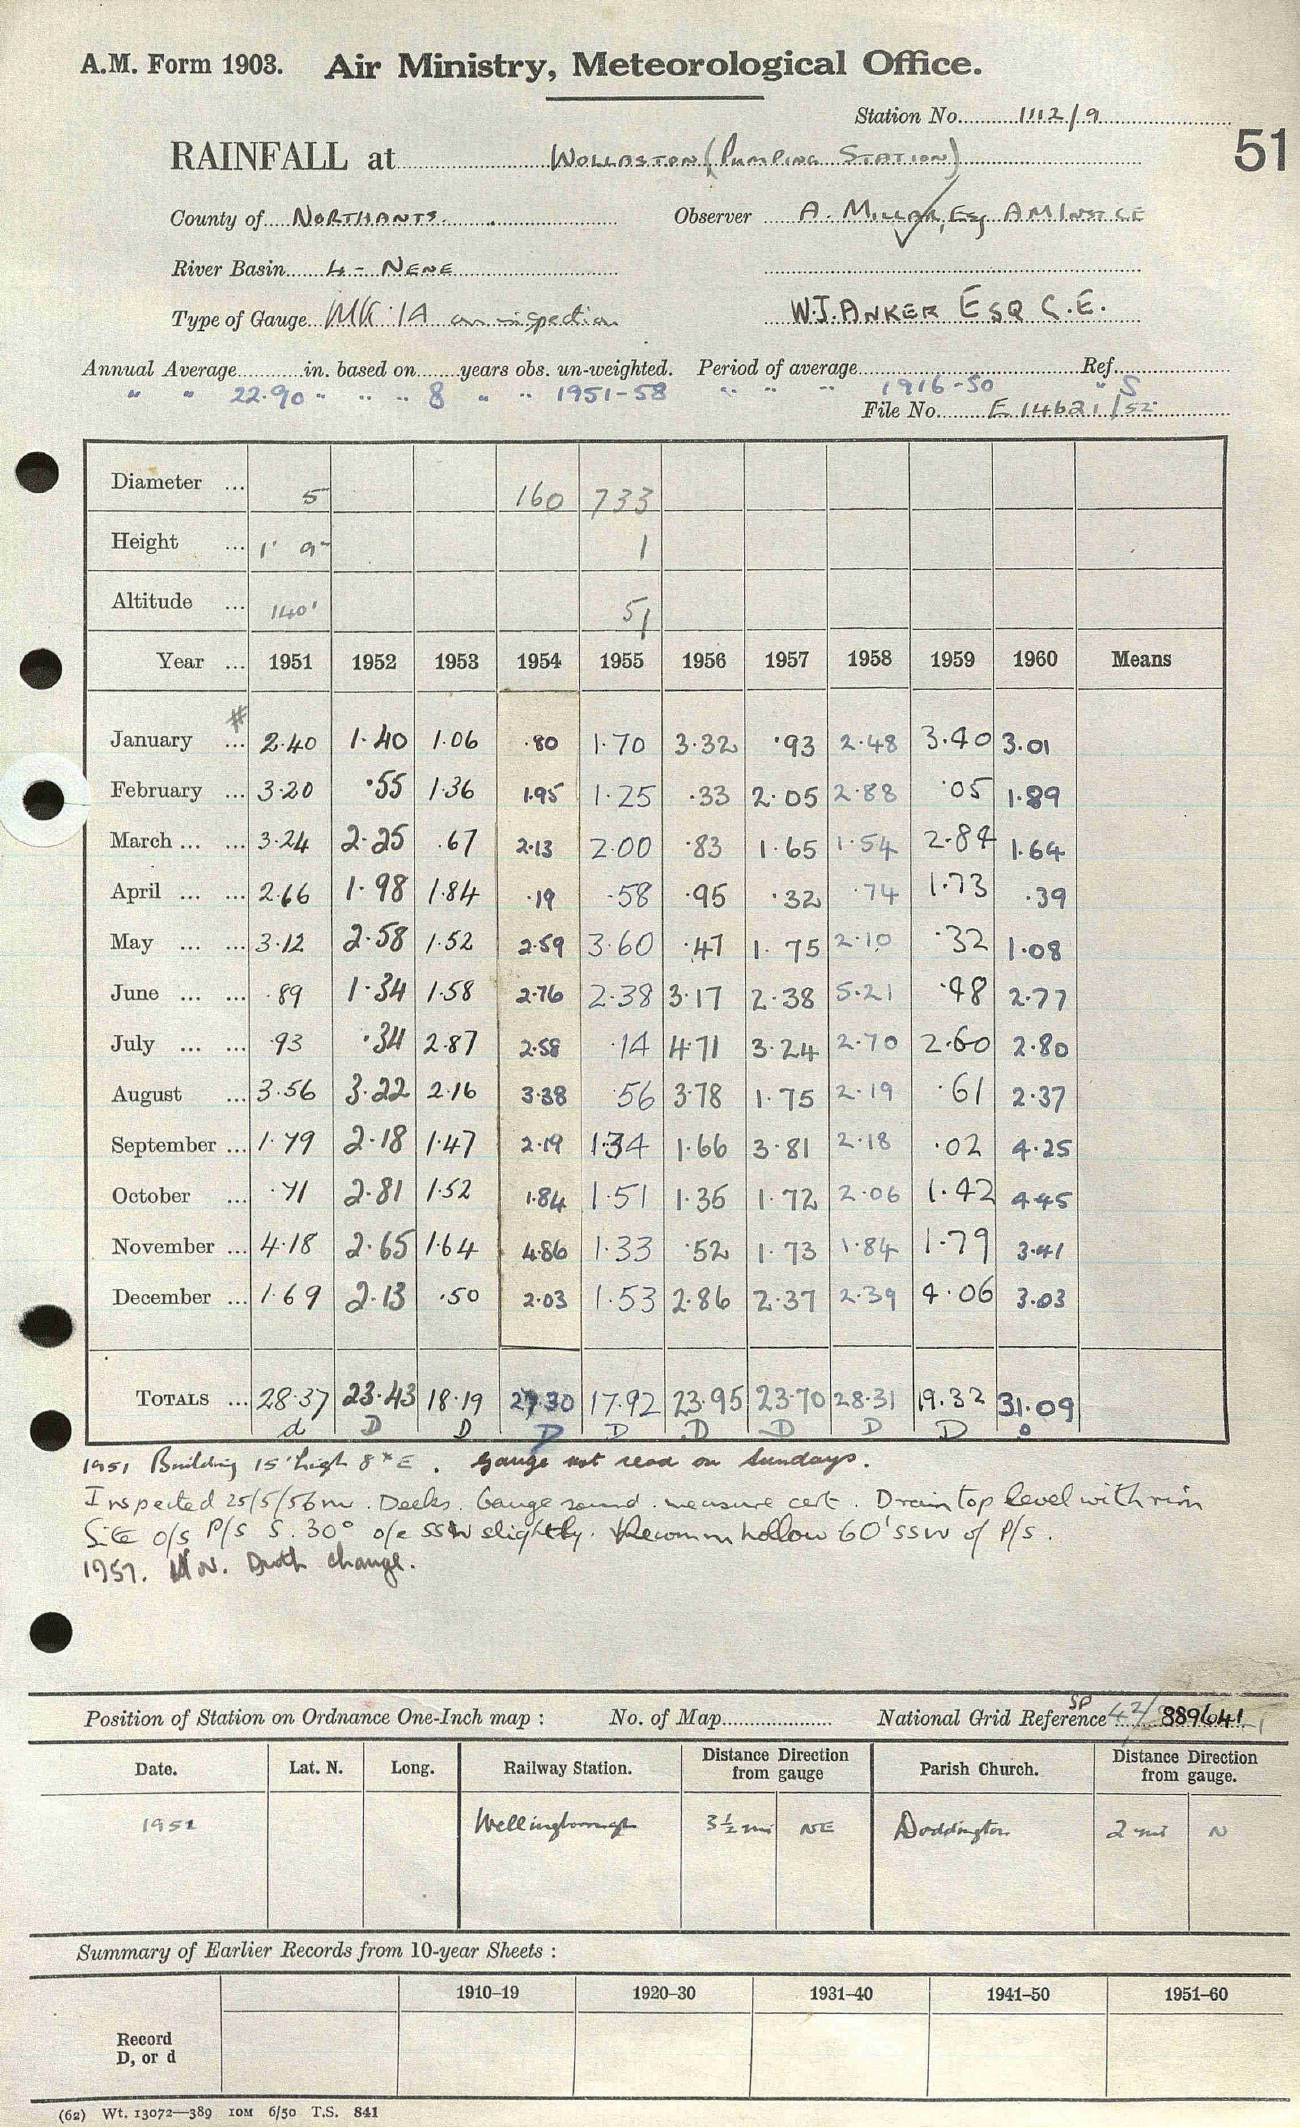 A.M. Form 1903. Air Ministry, Meteorological Office.
Station No. 1112/9
51
RAINFALL at Wollaston (Pumping Station)
County of Northants. Observer A. Millar, Esq AMInstCE
River Basin 4 - Nene
Type of Gauge MK 1A on inspection W.J. Anker Esq C.E.
Annual Average in. based on years obs. un-weighted. Period of average Ref.
" " 22.90 " " " 8 " " 1951-58 " " " 1916-50 " S
File No. E 14621/52
Diameter ... 5 160 733
Height ... 1' 9" 1
Altitude ... 140' 51
Year ... 1951 1952 1953 1954 1955 1956 1957 1958 1959 1960 Means
#
January ... 2.40 1.40 1.06 .80 1.70 3.32 .93 2.48 3.40 3.01
February ... 3.20 .55 1.36 1.95 1.25 .33 2.05 2.88 .05 1.89
March ... ... 3.24 2.25 .67 2.13 2.00 .83 1.65 1.54 2.84 1.64
April ... ... 2.66 1.98 1.84 .19 .58 .95 .32 .74 1.73 .39
May ... ... 3.12 2.58 1.52 2.59 3.60 .47 1.75 2.10 .32 1.08
June ... ... .89 1.34 1.58 2.76 2.38 3.17 2.38 5.21 .48 2.77
July ... ... .93 .34 2.87 2.58 .14 4.71 3.24 2.70 2.60 2.80
August ... 3.56 3.22 2.16 3.38 .56 3.78 1.75 2.19 .61 2.37
September ... 1.79 2.18 1.47 2.19 1.34 1.66 3.81 2.18 .02 4.25
October ... .71 2.81 1.52 1.84 1.51 1.35 1.72 2.06 1.42 4.45
November ... 4.18 2.65 1.64 4.86 1.33 .52 1.73 1.84 1.79 3.41
December ... 1.69 2.13 .50 2.03 1.53 2.86 2.37 2.39 4.06 3.03
Totals ... 28.37 23.43 18.19 27.30 17.92 23.95 23.70 28.31 19.32 31.09
d D D D D D D D D D
1951 Building 15' high 8x E. Gauge not read on Sundays.
Inspected 25/5/56 . Gauge sound. measure cert. Drain top level with rim
Site o/s P/s S. 30° o/e SSW slightly. Recomm hollow 60' SSW of P/s.
1957. Nov. change.
Position of Station on Ordnance One-Inch map : No. of Map National Grid Reference SP 42/ 889641
Date. Lat. N. Long. Railway Station. Distance Direction from gauge Parish Church. Distance Direction from gauge.
1951 Wellingborough 3½ mi NE Doddington 2 mi N
Summary of Earlier Records from 10-year Sheets :
1910–19 1920–30 1931–40 1941–50 1951–60
Record
D, or d
(62) Wt. 13072—389 10M 6/50 T.S. 841